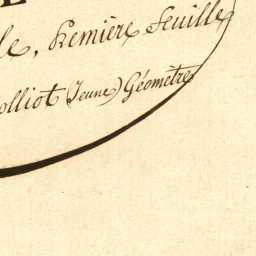 le, Première Feuille
olliot (Jeune) Géomètre